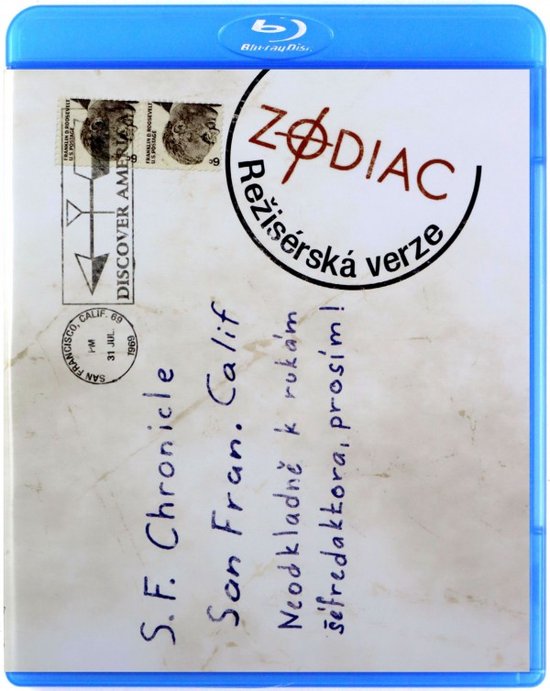 Blu-ray Disc
ZODIAC
Režisérská verze
FRANKLIN D. ROOSEVELT
U.S. POSTAGE
6¢
FRANKLIN D. ROOSEVELT
U.S. POSTAGE
6¢
DISCOVER AMERICA
SAN FRANCISCO, CALIF. 69
PM
31 JUL
1969
S.F. Chronicle
San Fran. Calif
Neodkladně k rukám
šéfredaktora, prosím!